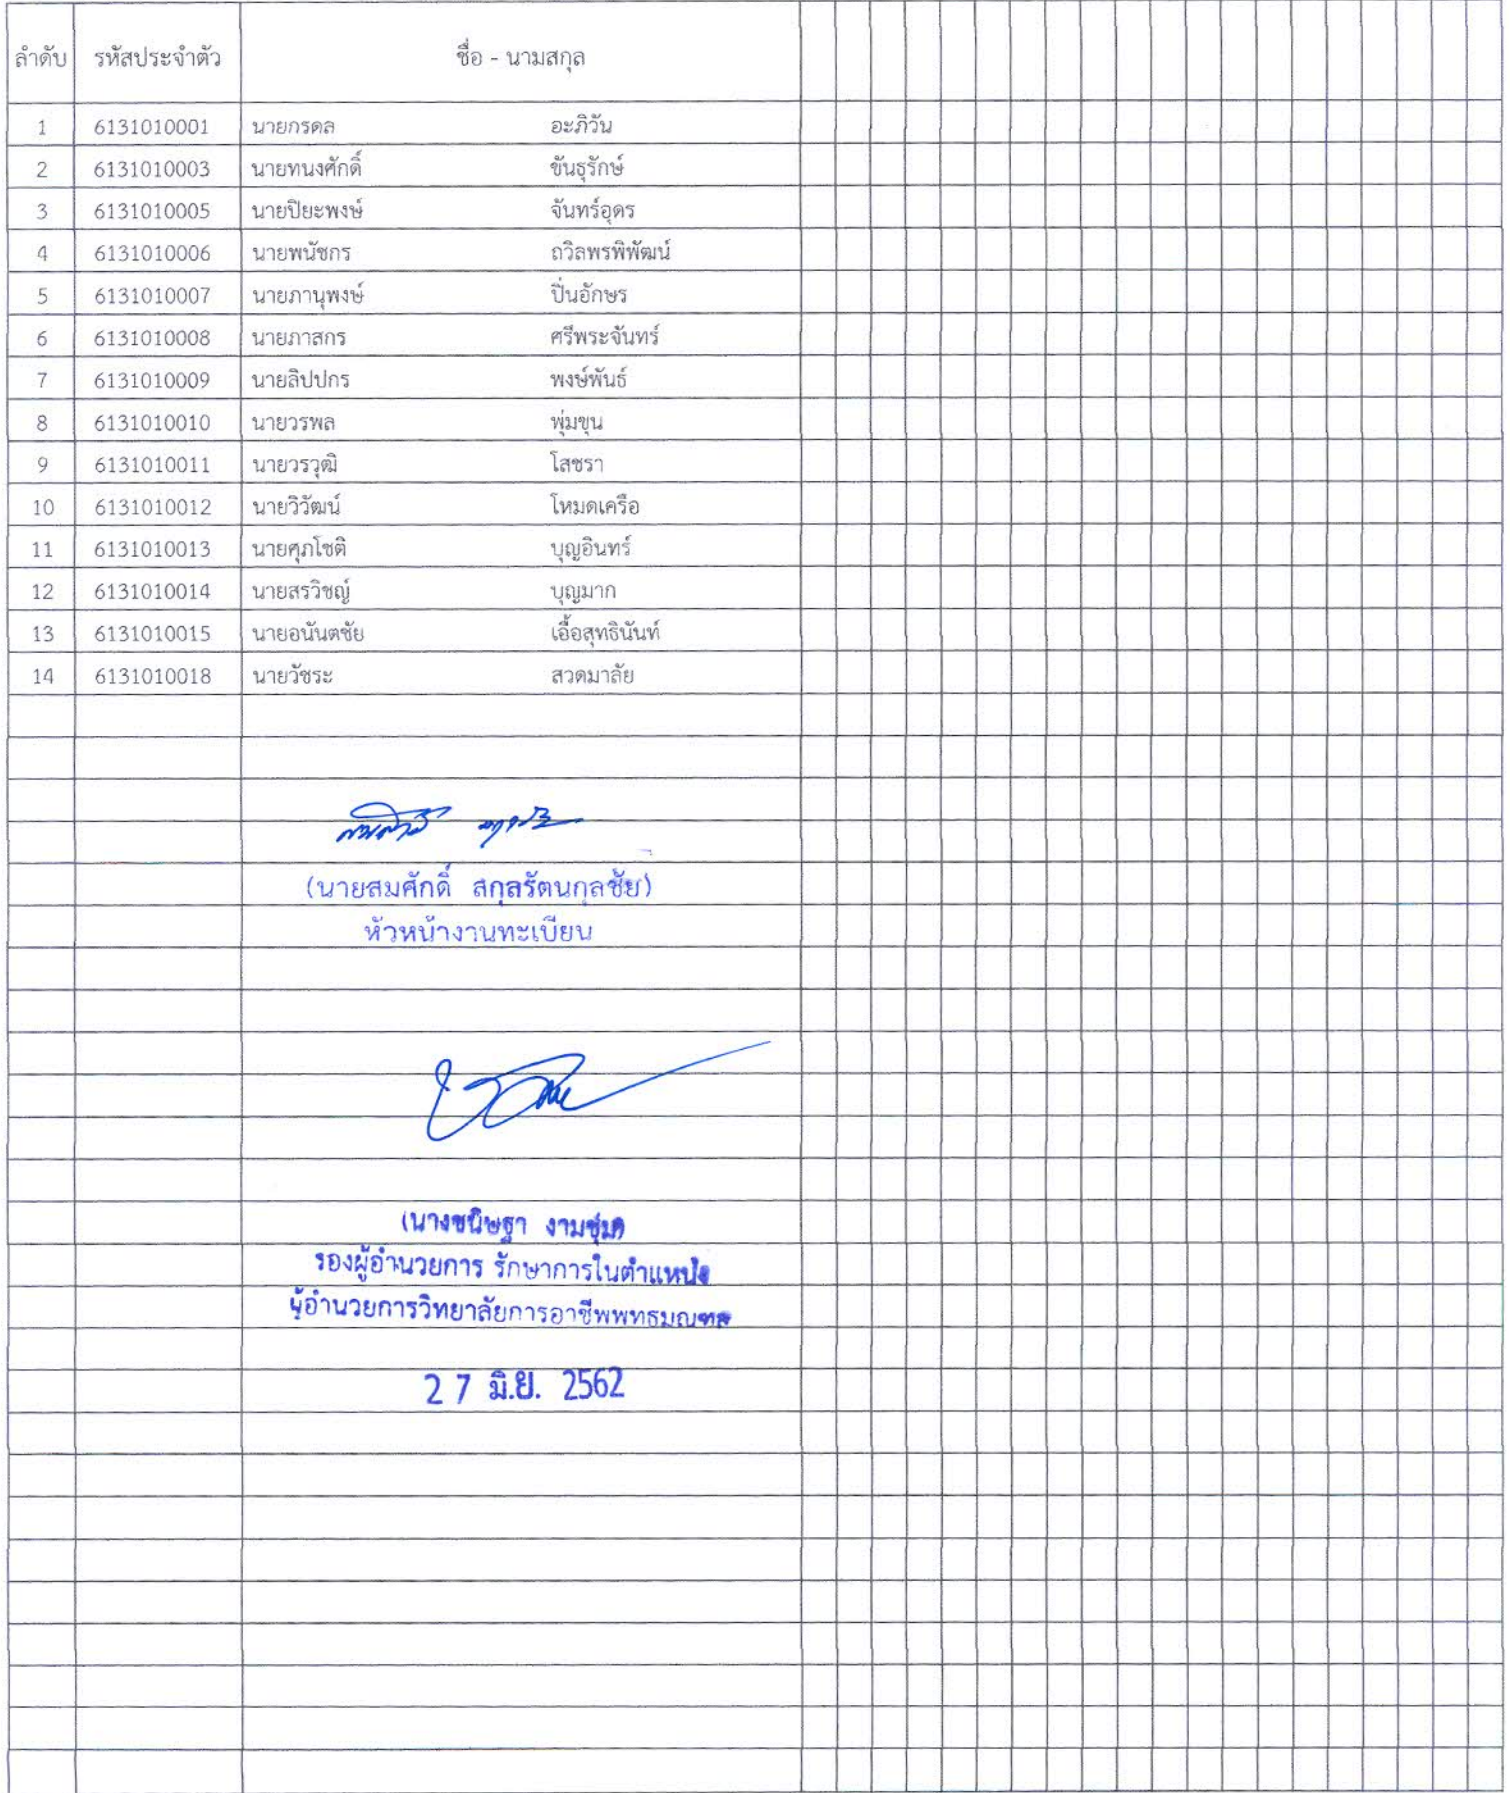 ลำดับ รหัสประจำตัว ชื่อ - นามสกุล
1 6131010001 นายกรดล อะภิวัน
2 6131010003 นายทนงศักดิ์ ขันธุรักษ์
3 6131010005 นายปิยะพงษ์ จันทร์อุดร
4 6131010006 นายพนัชกร ถวิลพรพิพัฒน์
5 6131010007 นายภานุพงษ์ ปิ่นอักษร
6 6131010008 นายภาสกร ศรีพระจันทร์
7 6131010009 นายลิปปกร พงษ์พันธ์
8 6131010010 นายวรพล พุ่มขุน
9 6131010011 นายวรวุฒิ โสชรา
10 6131010012 นายวิวัฒน์ โหมดเครือ
11 6131010013 นายศุภโชติ บุญอินทร์
12 6131010014 นายสรวิชญ์ บุญมาก
13 6131010015 นายอนันตชัย เอื้อสุทธินันท์
14 6131010018 นายวัชระ สวดมาลัย
(นายสมศักดิ์ สกุลรัตนกุลชัย)
หัวหน้างานทะเบียน
(นางชนิษฐา งามชุม)
รองผู้อำนวยการ รักษาการในตำแหน่ง
ผู้อำนวยการวิทยาลัยการอาชีพพุทธมณฑล
27 มิ.ย. 2562